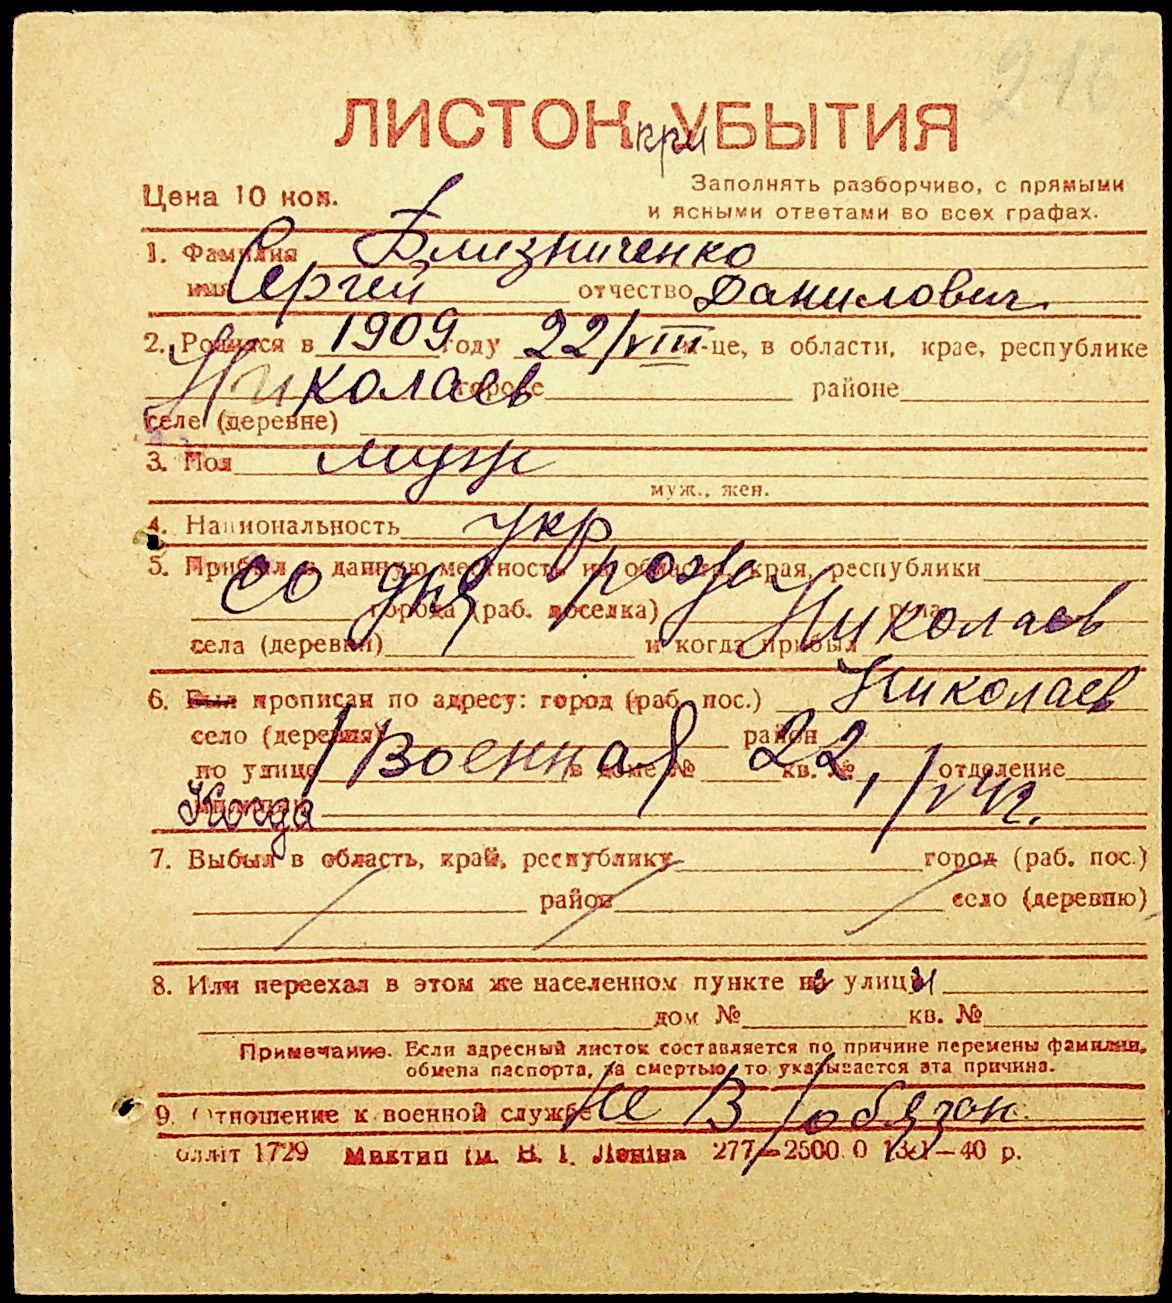 216
ЛИСТОК при УБЫТИЯ
Цена 10 коп.
Заполнять разборчиво, с прямыми
и ясными ответами во всех графах.
1. Фамилия Близниченко
имя Сергей отчество Данилович
2. Родился в 1909 году 22/VIII м-це, в области, крае, республике
Николаев городе районе
селе (деревне)
3. Пол муж
муж., жен.
4. Национальность укр
5. Прибыл в данную местность из области, края, республики
со дня рожд. Николаев
города (раб. поселка) р-на
села (деревни) и когда прибыл
6. Был прописан по адресу: город (раб. пос.) Николаев
село (деревня) район
по улице I Военная в доме № 22, кв. № отделение
Когда
7. Выбыл в область, край, республику город (раб. пос.)
район село (деревню)
8. Или переехал в этом же населенном пункте из улицы
дом № кв. №
Примечание. Если адресный листок составляется по причине перемены фамилии,
обмена паспорта, за смертью, то указывается эта причина.
9. Отношение к военной службе Не в/обязан.
1729 Миктип ім. В. І. Леніна 277—2500 0 —40 р.